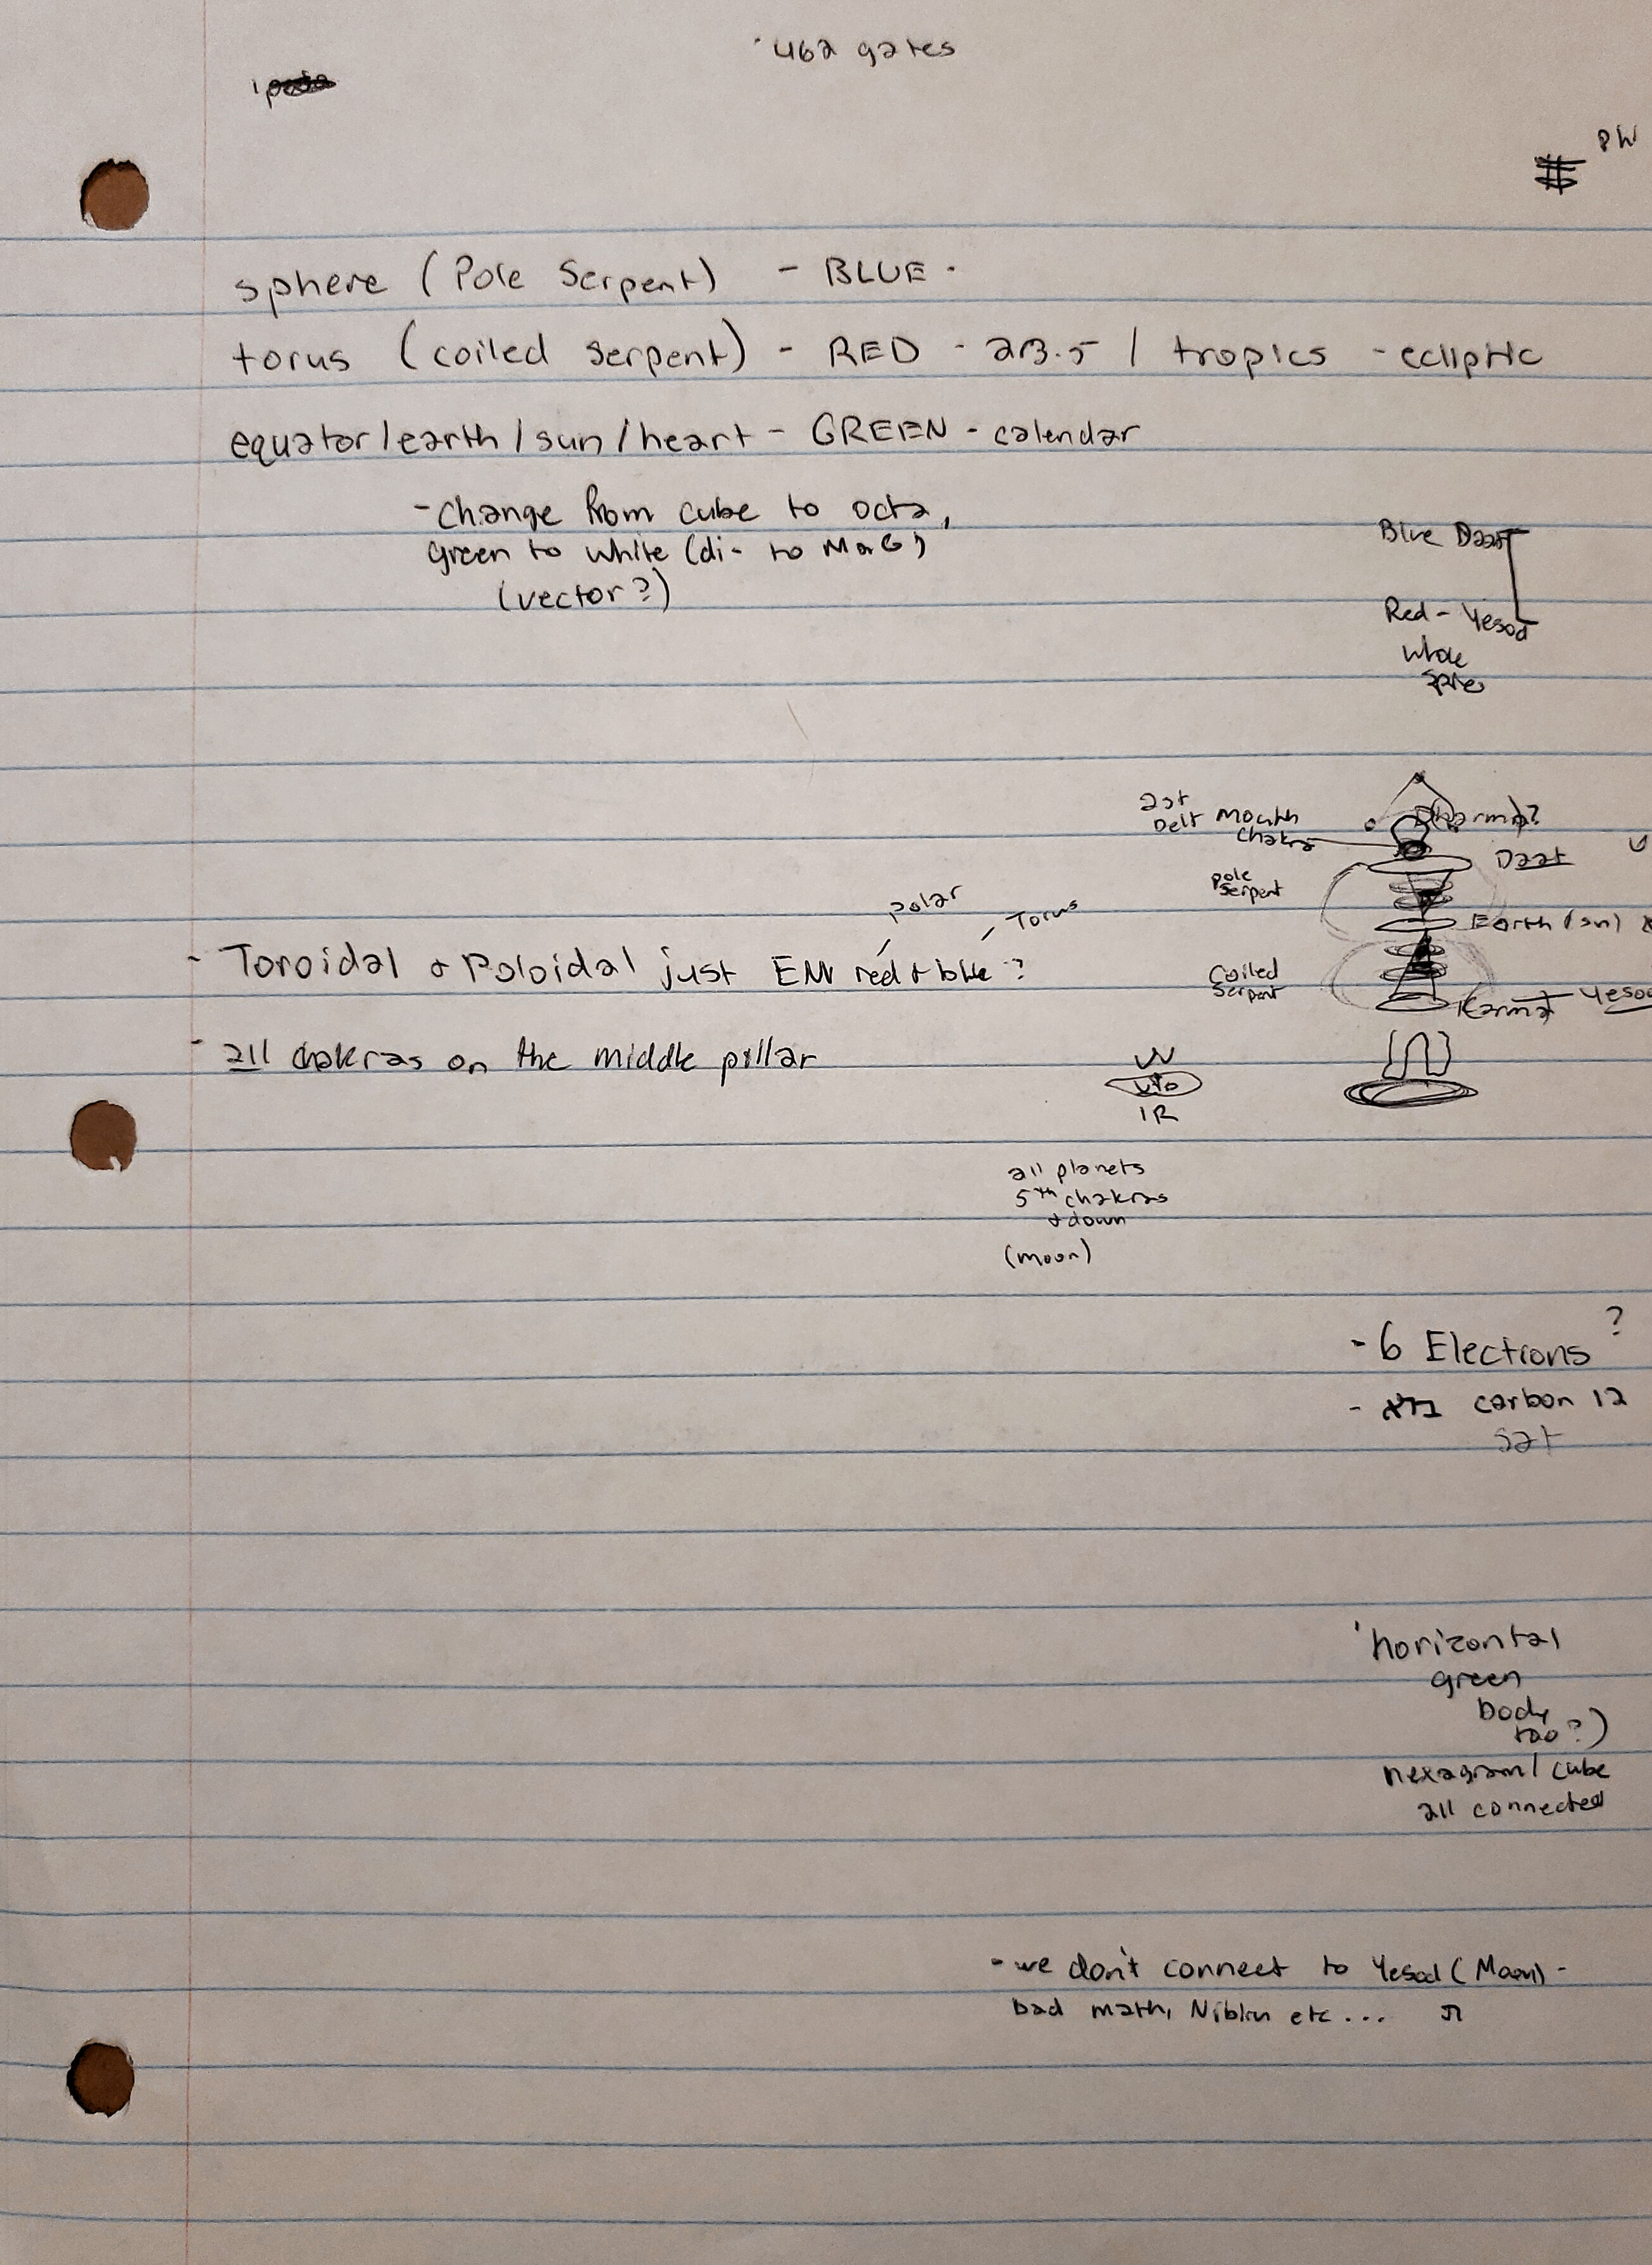 462 gates
sphere (Pole Serpent) - BLUE -
torus (coiled serpent) - RED - 23.5 / tropics - ecliptic
equator/earth/sun/heart - GREEN - calendar
- Change from cube to octa,
green to white (di- to
(vector?)
Blue Daat
Red - Yesod
whole
Dharma?
Mouth
Chakra
Daat
pole
serpent
Polar
Torus
Earth (sun)
- Toroidal & Poloidal just EM red & blue?
Coiled
Serpent
Karma Yesod
- all chakras on the middle pillar
UV
IR
all planets
5th chakras
& down
(moon)
- 6 Electrons ?
- carbon 12
sat
horizontal
green
body
too?)
hexagram/cube
all connected
- we don't connect to Yesod (Moon) -
bad math, etc...